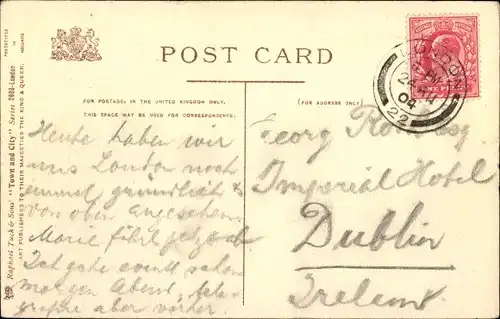 POST CARD
FOR POSTAGE IN THE UNITED KINGDOM ONLY.
THIS SPACE MAY BE USED FOR CORRESPONDENCE.
(FOR ADDRESS ONLY.)
Heute haben wir
uns London noch
einmal gründlich
von oben angesehen
Marie fährt jetzt ab
Ich gehe event schon
morgen Abend,
aber vorher.
Georg Esq
Imperial Hotel
Dublin
Ireland
ONE PENNY
LONDON
PM
24
04
22
Raphael Tuck & Sons' "Town and City" Series 2000-London
ART PUBLISHERS TO THEIR MAJESTIES THE KING & QUEEN.